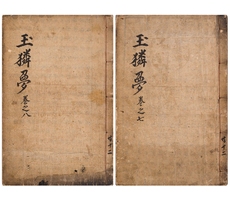 玉獜夢
卷之七
玉獜夢
卷之八